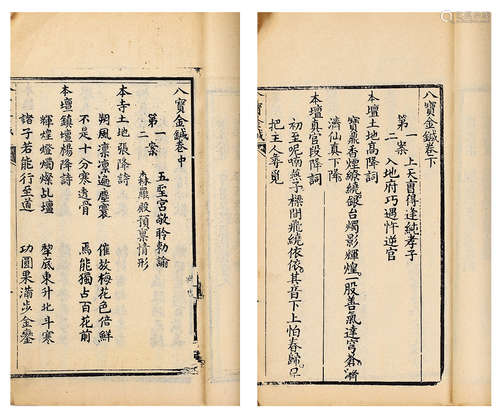 八寶金鍼卷中
第一案 五聖宮敬聆勅諭
二 森羅殿預稟情形
本寺土地張降詩
朔風凜凜遍塵寰 催放梅花色倍鮮
不是十分寒透骨 焉能獨占百花前
本壇鎮壇楊降詩
輝煌燈燭燦乩壇 犂底東升北斗寒
諸子若能行至道 功圓果滿步金鑾
八寶金鍼卷下
第一案 上天曹得逢純孝子
二 入地府巧遇忤逆官
本壇土地高降詞
寶鼎香煙繚繞銀台燭影輝煌一股善氣達穹蒼
濟仙真下降
本壇真官段降詞
初至呢喃燕子樑間飛繞依依其音下上怕春歸早
把主人尋覓